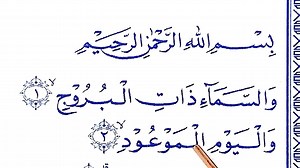 بِسْمِ اللهِ الرَّحْمٰنِ الرَّحِيْمِ
وَالسَّمَآءِ ذَاتِ الْبُرُوْجِ ۙ ١
وَالْيَوْمِ الْمَوْعُوْدِ ۙ ٢